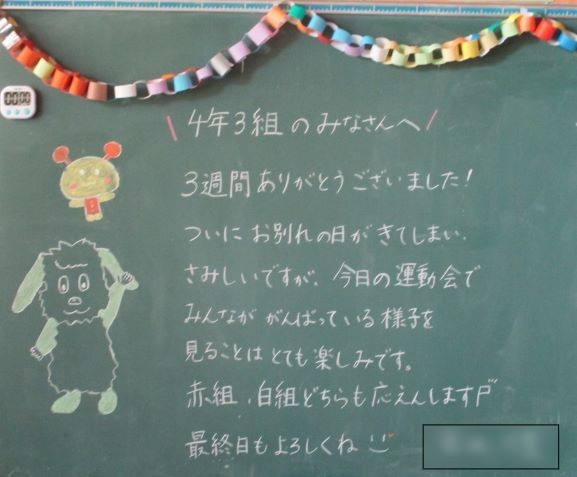 00:00
\ 4年3組のみなさんへ /
3週間ありがとうございました!
ついにお別れの日がきてしまい、
さみしいですが、今日の運動会で
みんながんばっている様子を
見ることはとても楽しみです。
赤組、白組どちらも応えんします
最終日もよろしくね